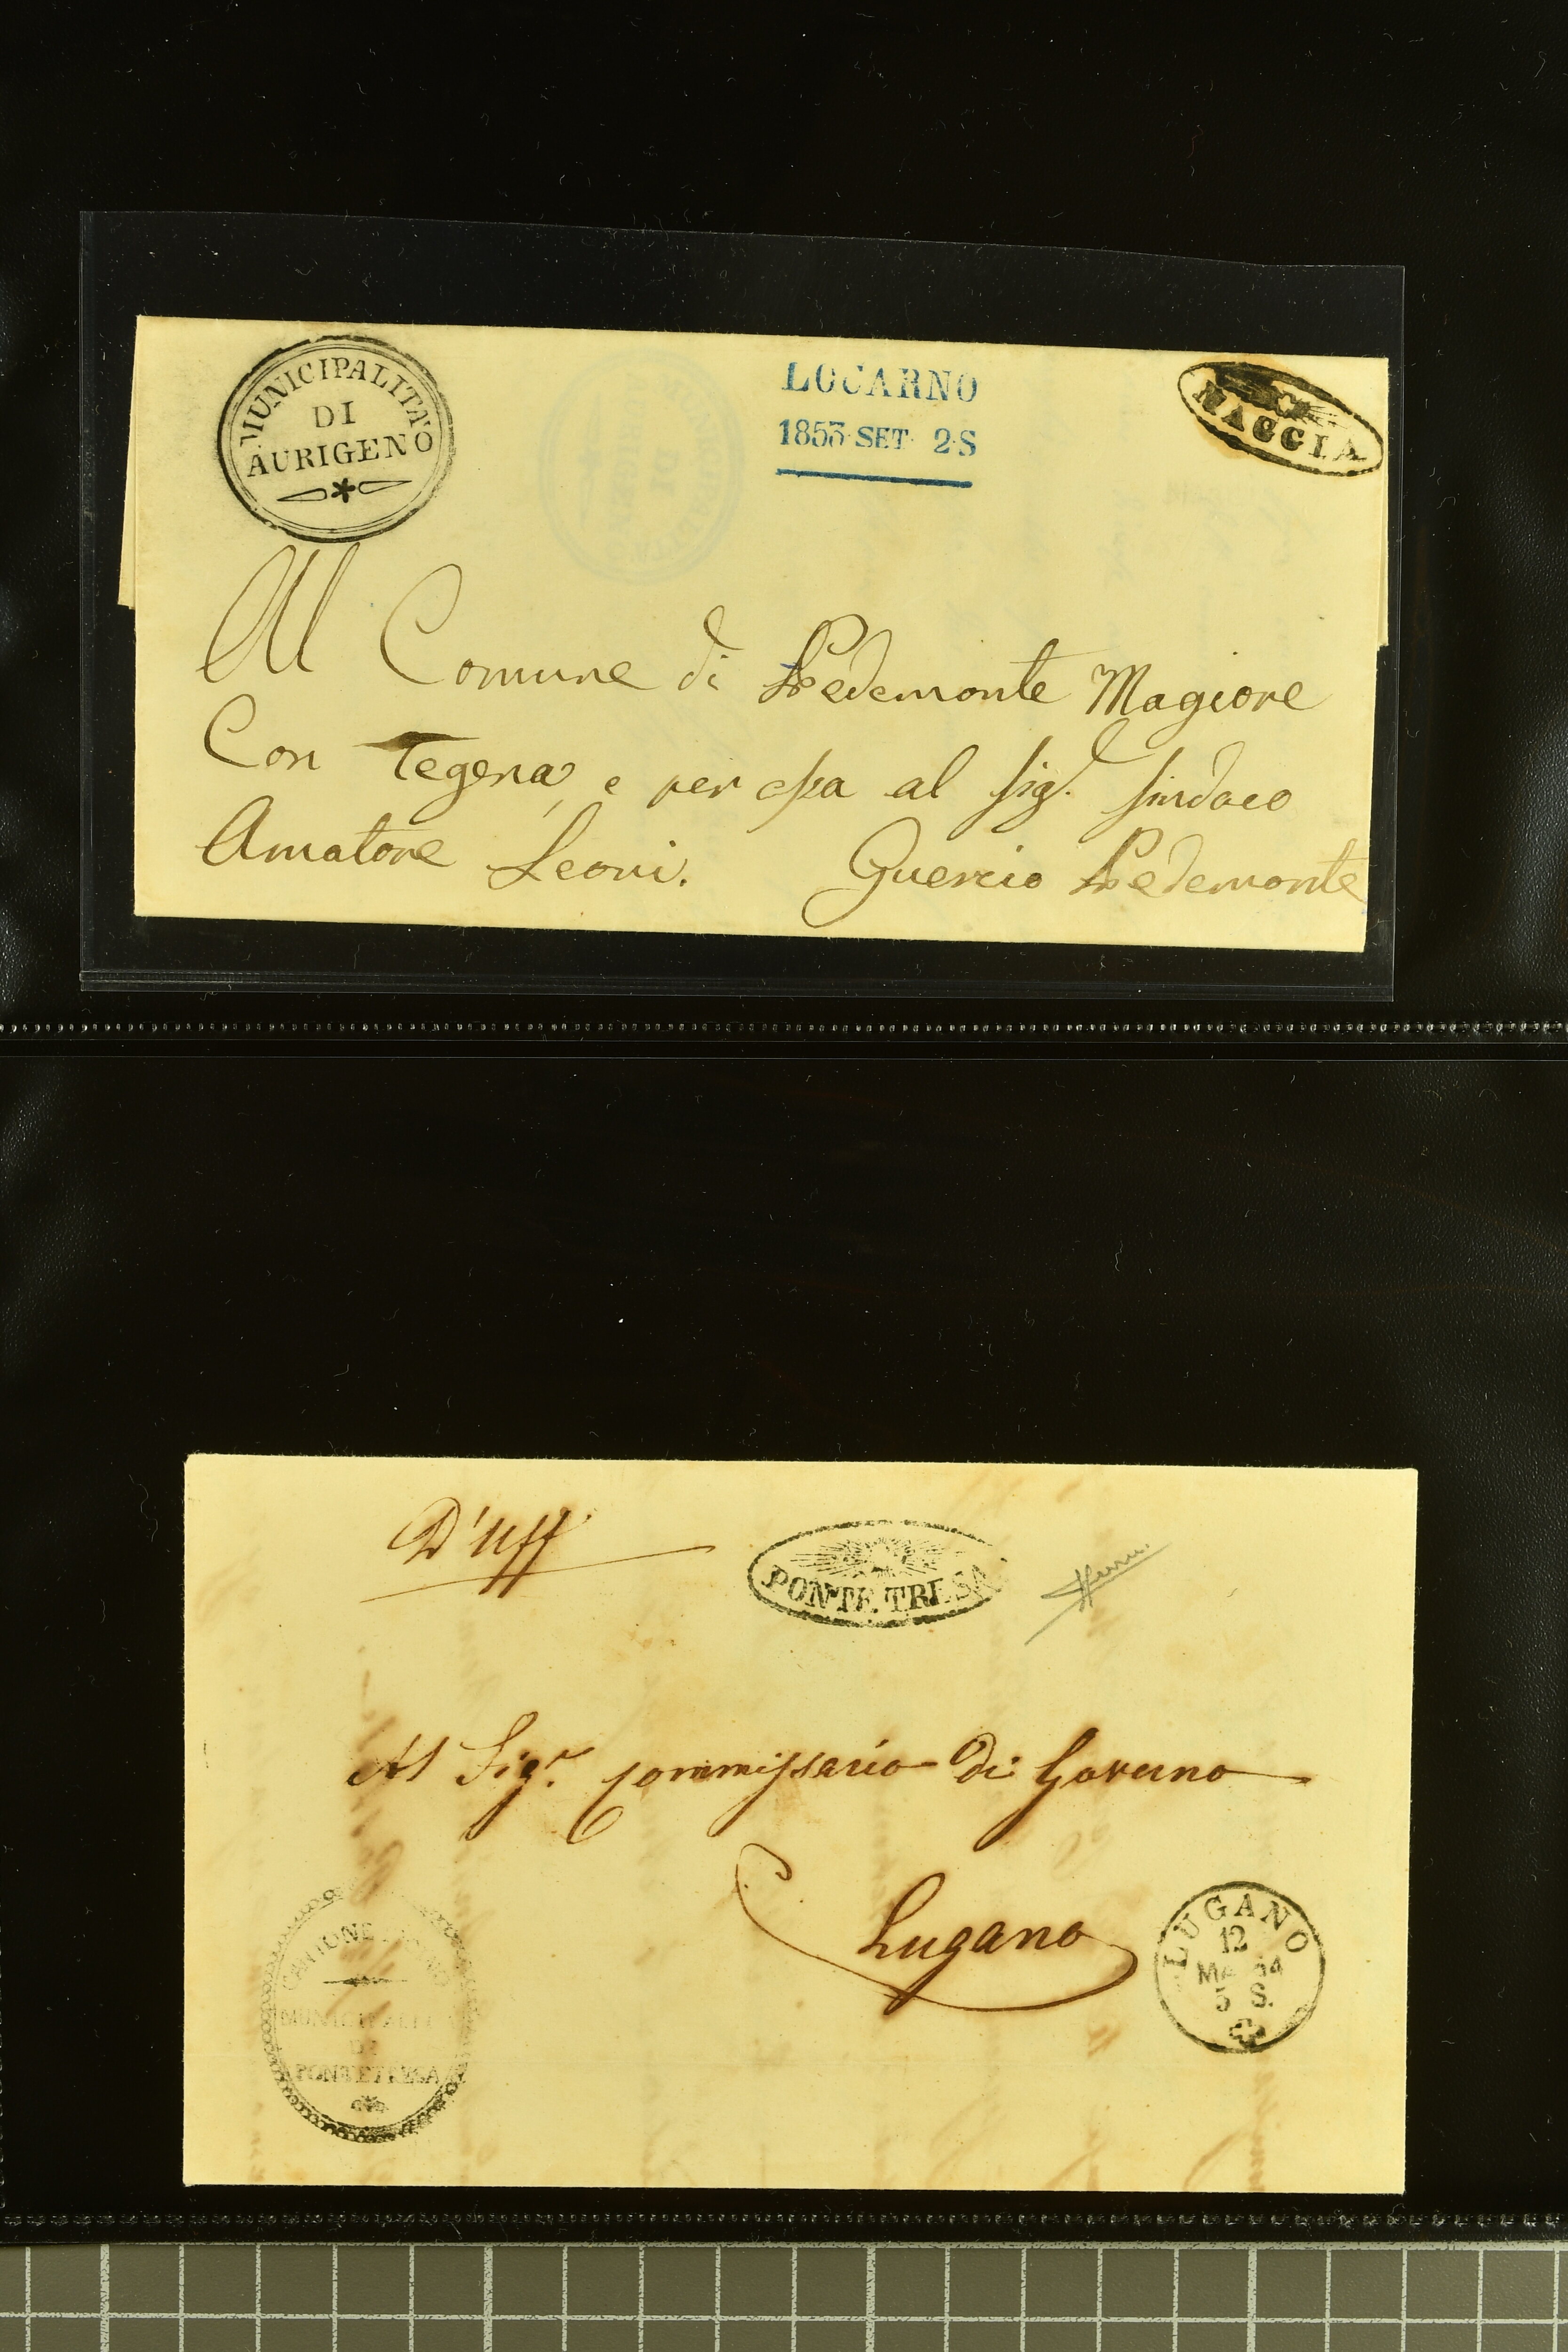 MUNICIPALITA
DI
AURIGENO
LOCARNO
1853 SET 2 S
MAGGIA
Al Comune di Pedemonte Magiore
Con Tegena, e per essa al Sig.r Sindaco
Amatore Leoni. Guercio Pedemonte
D'Uff
PONTE TRESA
Al Sig.r Commissario di Governo
Lugano
LUGANO
12
5 S.
CANTONE
MUNICIPALITA
DI
PONTE TRESA